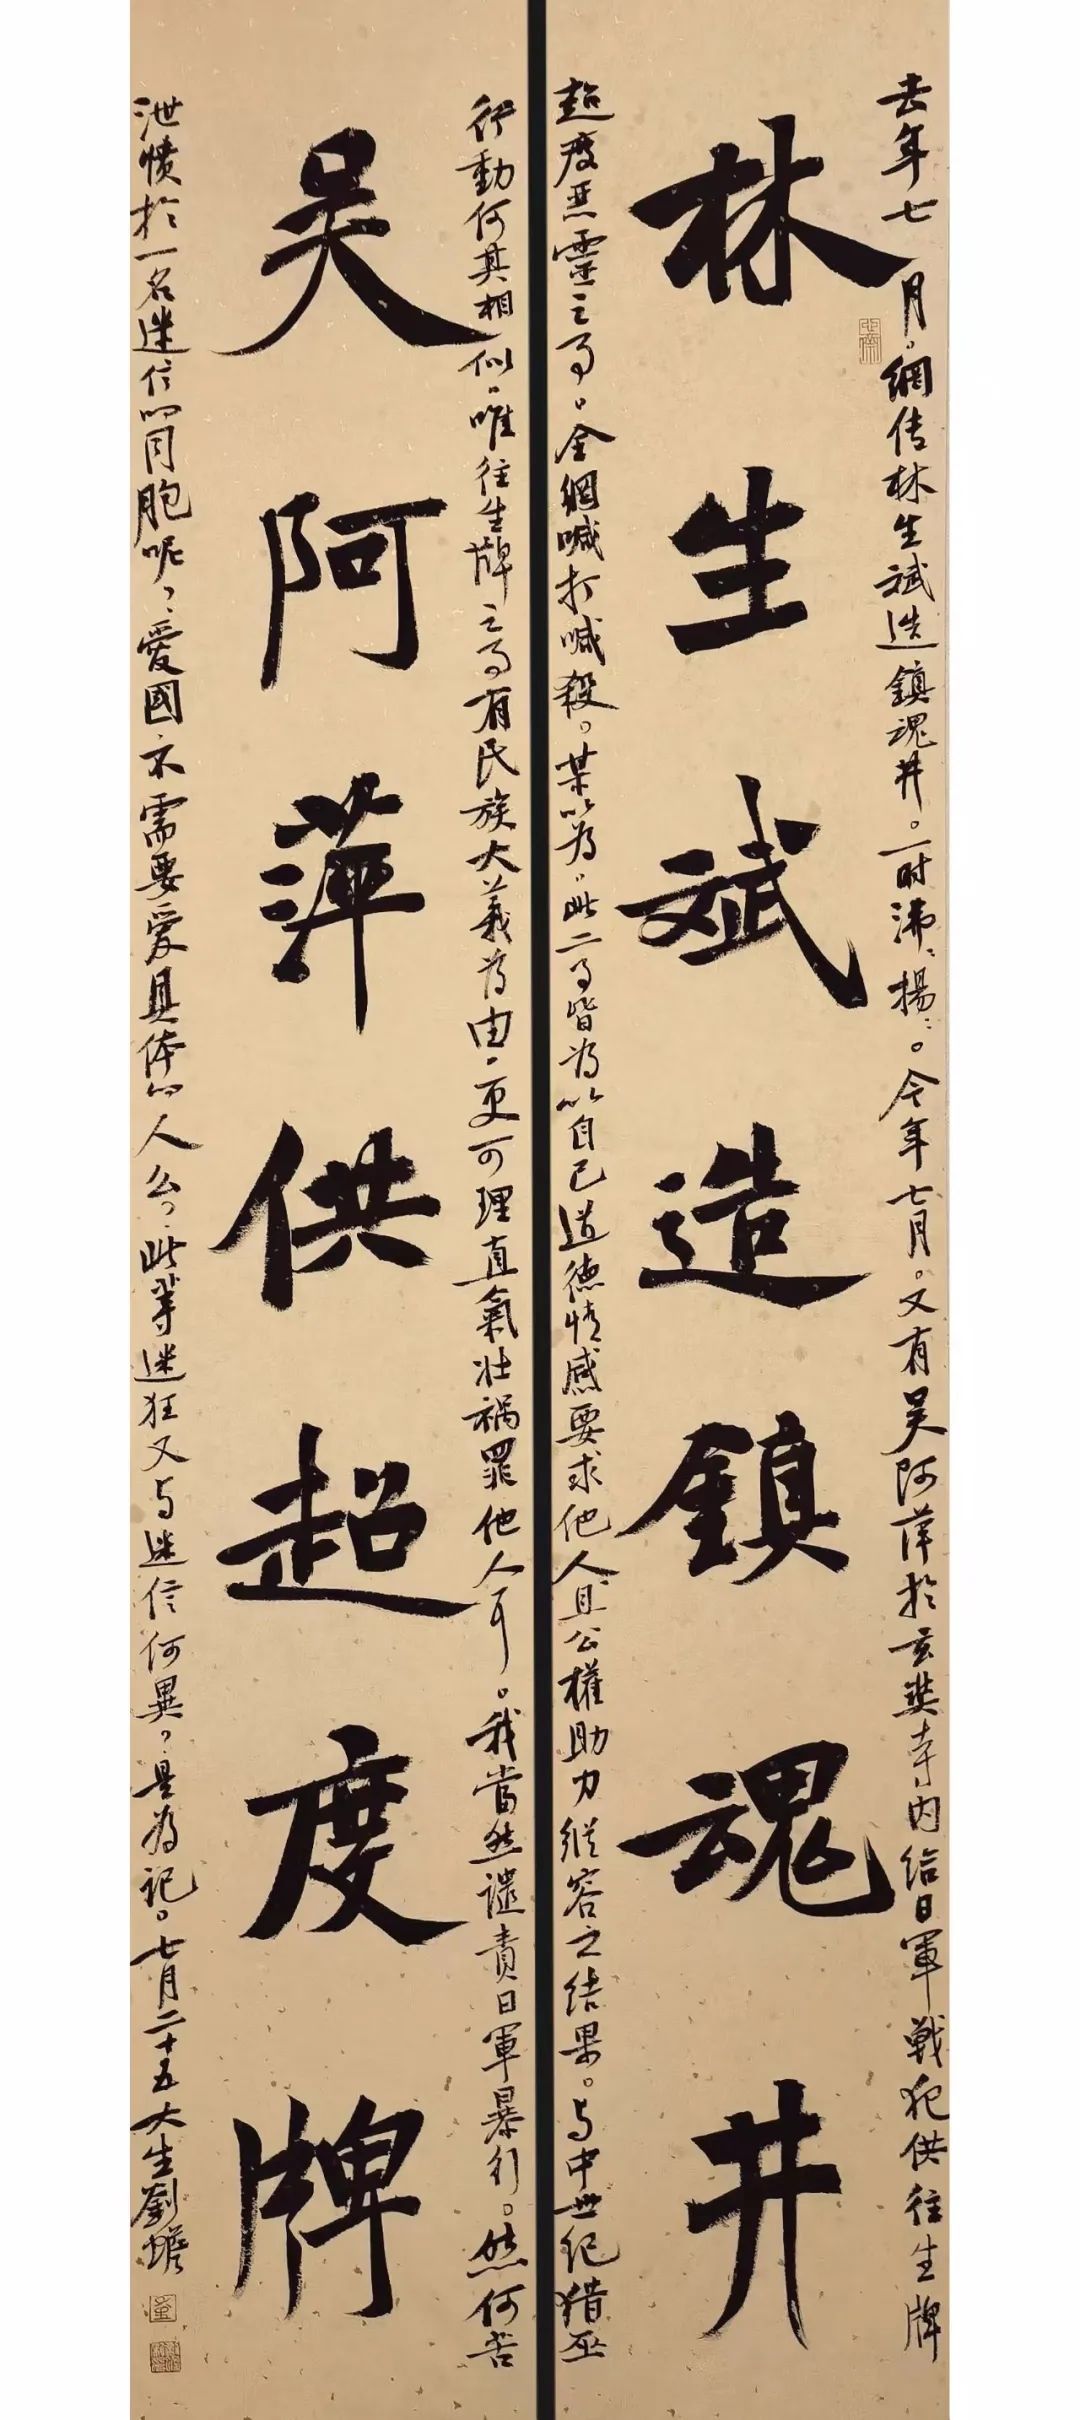 去年七月。網传林生斌造鎮魂井。一时沸〻揚〻。今年七月。又有吴阿萍於玄奘寺内给日軍戰犯供往生牌
林生斌造鎮魂井
超度恶靈之事。全網喊打喊殺。某以為。此二事皆为以自己道德情感要求他人且公權助力縱容之结果。与中世纪猎巫
行動何其相似。唯往生牌之事有民族大義为由、更可理直氣壮祸罪他人耳。我當然谴責日軍暴行。然何苦
吴阿萍供超度牌
泄愤於一名迷信的同胞呢、愛國不需要爱具体的人么、此等迷狂又与迷信何異、是為记。七月二十五大生劉蟾